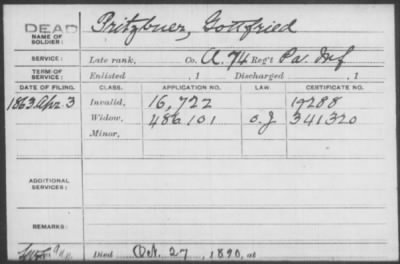 DEAD Pritzbuer, Gottfried
NAME OF
SOLDIER:
SERVICE: Late rank, Co. A. 74 Reg't Pa. Inf
TERM OF
SERVICE: Enlisted , 1 Discharged , 1
DATE OF FILING. CLASS. APPLICATION NO. LAW. CERTIFICATE NO.
1863. Apr. 3 Invalid, 16,722 17288
Widow, 486101 O. L. 341320
Minor,
ADDITIONAL
SERVICES:
REMARKS:
Died Oct. 27 , 1890, at